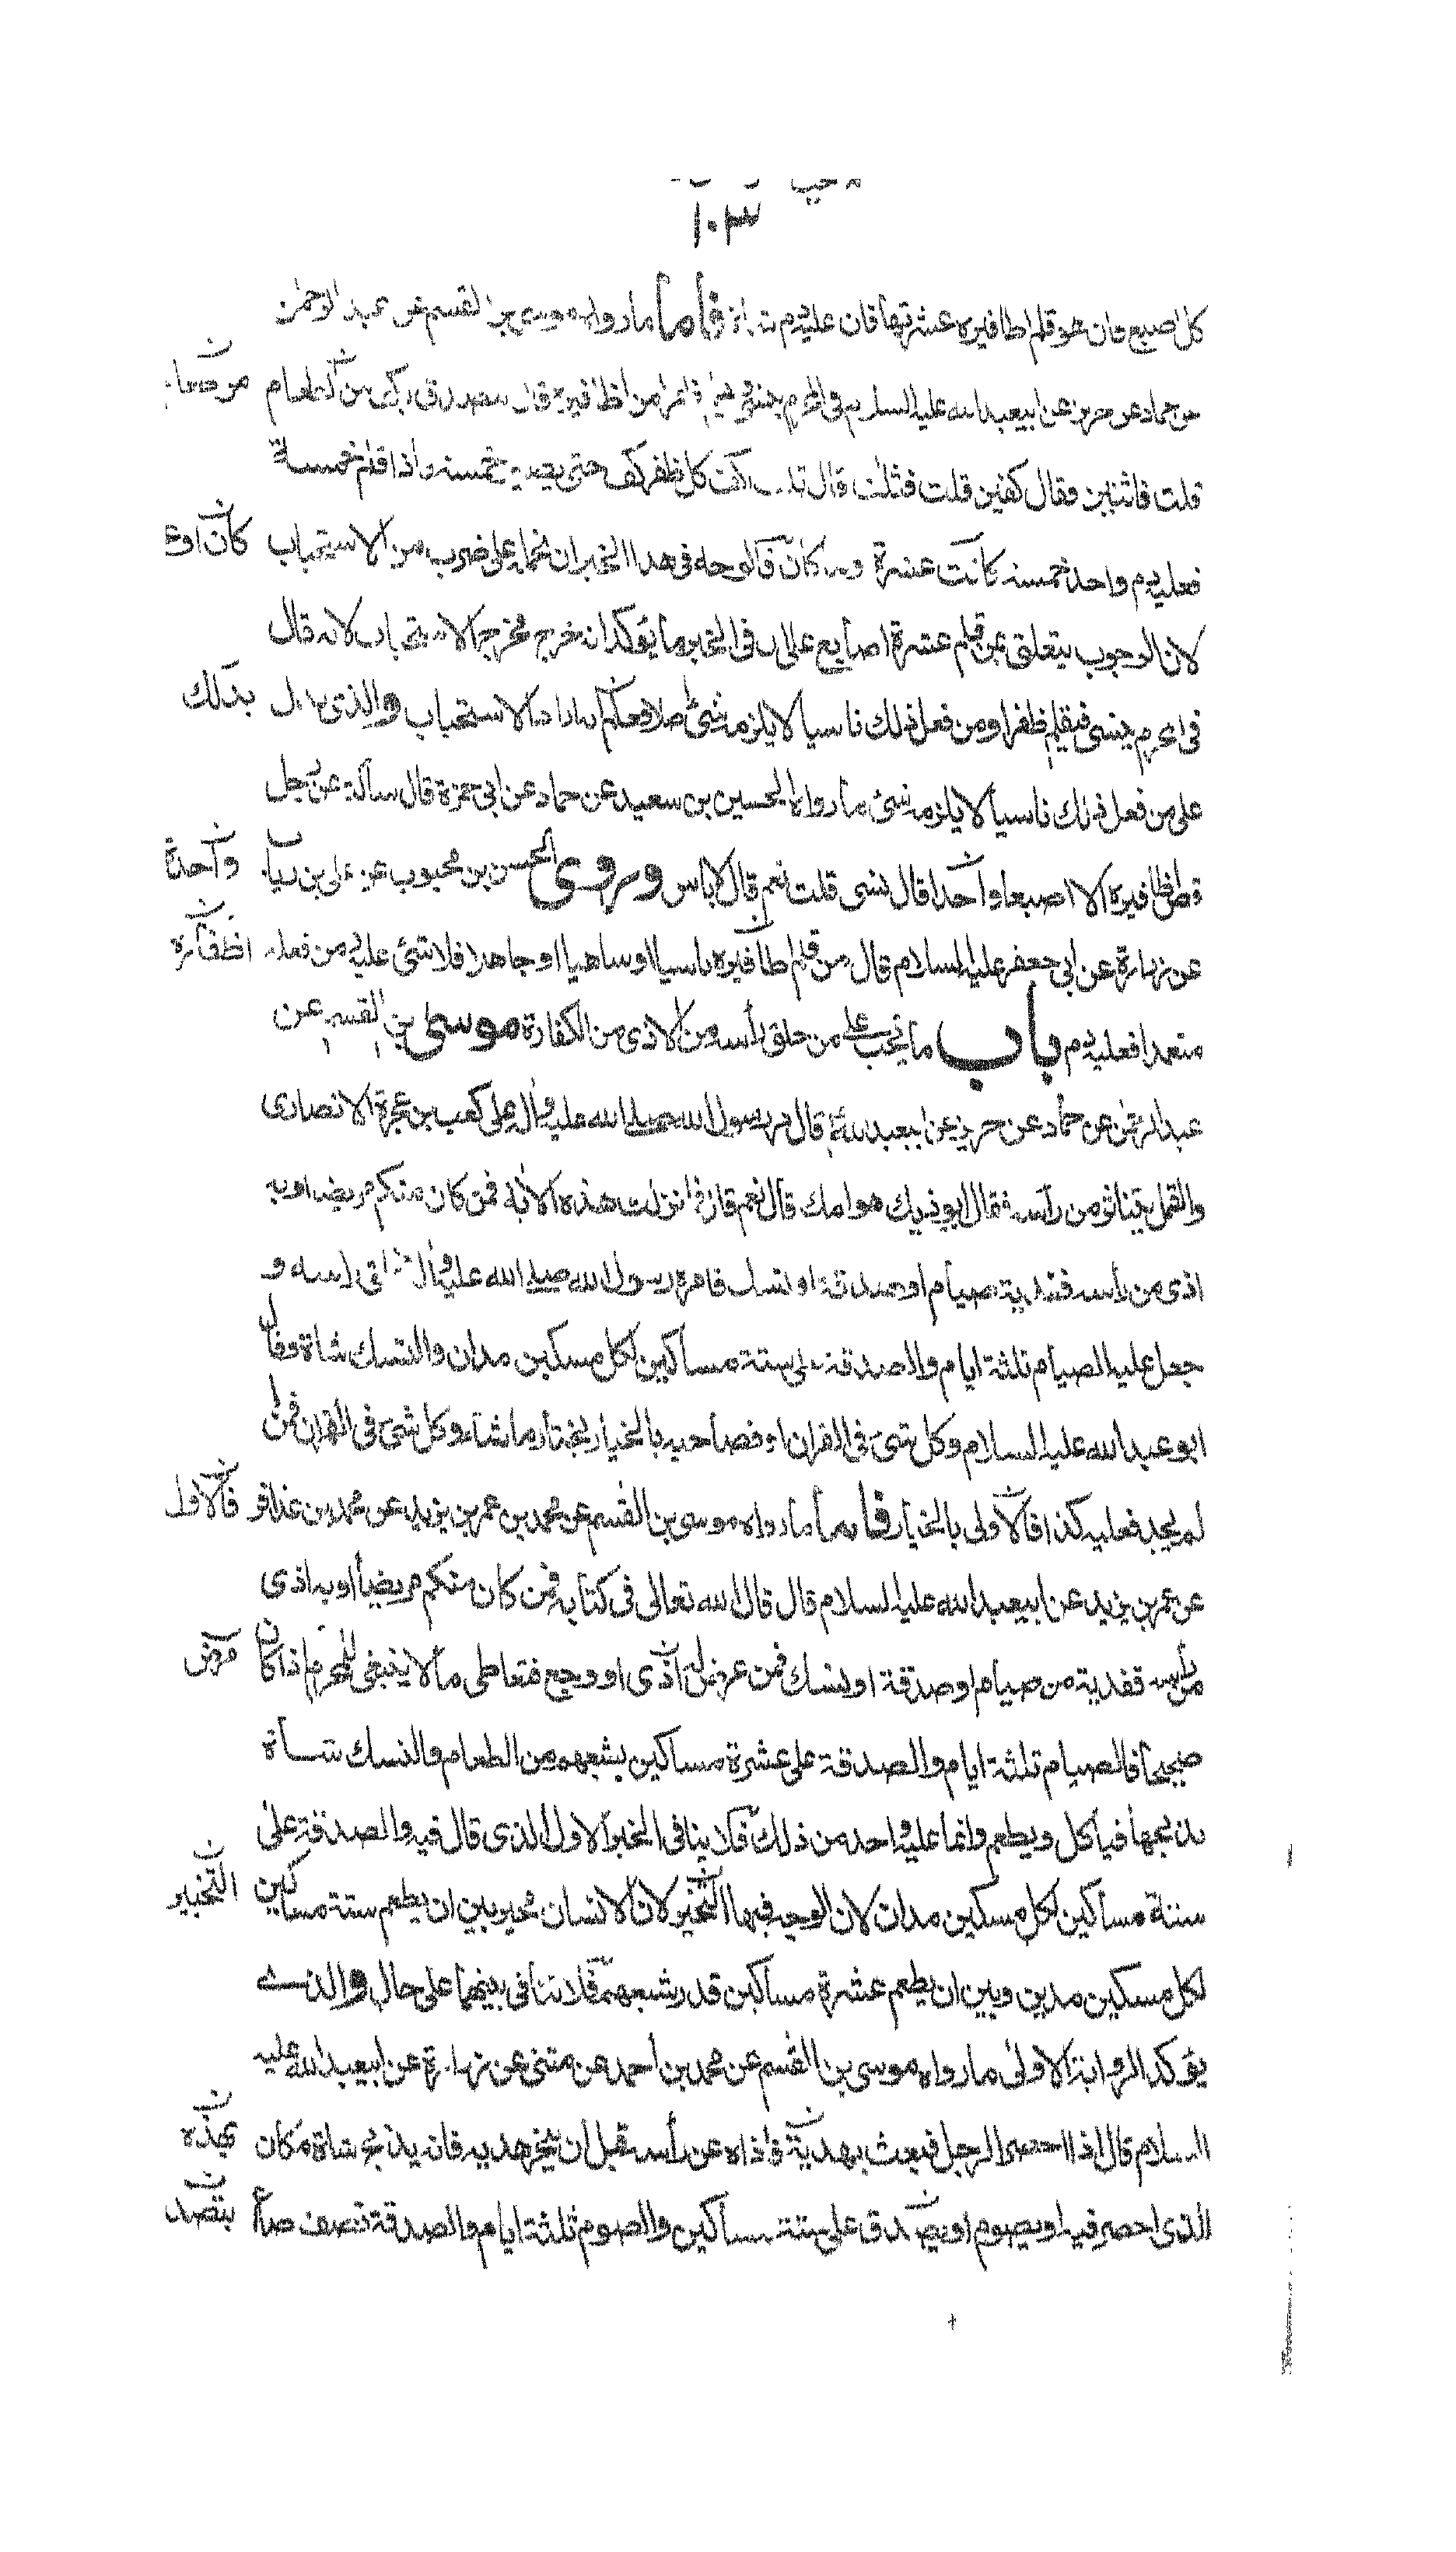 ١٠٣
كل اصبع فان هو قلم اظافيره عشرتها فان عليه دم شاة فأما ما رواه موسى بن القسم عن عبد الرحمن
عن حماد عن حريز عن ابيعبدالله عليه السلام فى المحرم ينسى فيقلم ظفرا من اظافيره قال يتصدق بكف من الطعام
قلت فاثنين فقال كفين قلت فثلث قال ثلث اكف كل ظفر كف حتى يصير خمسة واذا قلم خمسة
فعليه دم واحد خمسة كانت عشرة او ما كان فالوجه فى هذا الخبر ان نحمله على ضرب من الاستحباب كان او ع
لان الوجوب يتعلق بمن قلم عشرة اصابع على ان فى الخبر ما يؤكد انه خرج مخرج الاستحباب لانه قال
فى المحرم ينسى فيقلم ظفرا ومن فعل ذلك ناسيا لا يلزمه شئ اصلا فعلم انه اراد الاستحباب والذى يدل بذلك
على من فعل ذلك ناسيا لا يلزمه شئ ما رواه الحسين بن سعيد عن حماد عن ابى حمزة قال سألته عن رجل
قص اظافيره الا اصبعا واحدا قال نسى قلت نعم قال لا باس وروى الحسن بن محبوب عن على بن رياب واحدة
عن زرارة عن ابى جعفر عليه السلام قال من قلم اظافيره ناسيا او ساهيا او جاهلا فلا شئ عليه ومن فعله اظفاره
متعمدا فعليه دم باب ما يجب على من حلق رأسه من الاذى من الكفارة موسى بن القسم عن
عبدالرحمن عن حماد عن حريز عن ابيعبدالله قال مر رسول الله صلى الله عليه وآله على كعب بن عجرة الانصارى
والقمل يتناثر من رأسه فقال ايوذيك هوامك قال نعم قال فانزلت هذه الآية فمن كان منكم مريضا او به
اذى من رأسه ففدية من صيام او صدقة او نسك فامره رسول الله صلى الله عليه وآله فحلق رأسه و
جعل عليه الصيام ثلثة ايام والصدقة على ستة مساكين لكل مسكين مدان والنسك شاة وقال
ابو عبدالله عليه السلام وكل شئ فى القران او فصاحبه بالخيار يختار ما شاء وكل شئ فى القران فمن
لم يجد فعليه كذا فالاولى بالخيار فأما ما رواه موسى بن القسم عن محمد بن عمر بن يزيد عن محمد بن عذافر فالاول
عن عمر بن يزيد عن ابيعبدالله عليه السلام قال قال الله تعالى فى كتابه فمن كان منكم مريضا او به اذى
من رأسه ففدية من صيام او صدقة او نسك فمن عرض له اذى او وجع فتعاطى ما لا ينبغى للمحرم اذا كان
صحيحا فالصيام ثلثة ايام والصدقة على عشرة مساكين يشبعهم من الطعام والنسك شاة
يذبحها فيأكل ويطعم وانما عليه واحد من ذلك فلا ينافى الخبر الاول الذى قال فيه والصدقة على
ستة مساكين لكل مسكين مدان لان الوجه فيها التخير لان الانسان مخير بين ان يطعم ستة مساكين التخيير
لكل مسكين مدين وبين ان يطعم عشرة مساكين قدر شبعهم فلا تنافى بينهما على حال والذى
يؤكد الرواية الاولى ما رواه موسى بن القسم عن محمد بن احمد عن مثنى عن زرارة عن ابيعبدالله عليه
السلام قال اذا احصر الرجل فبعث بهديه فاذاه عن رأسه قبل ان ينحر هديه فانه يذبح شاة مكان بهذه
الذى احصر فيه او يصوم او يصدق على ستة مساكين والصوم ثلثة ايام والصدقة نصف صاع يتصد